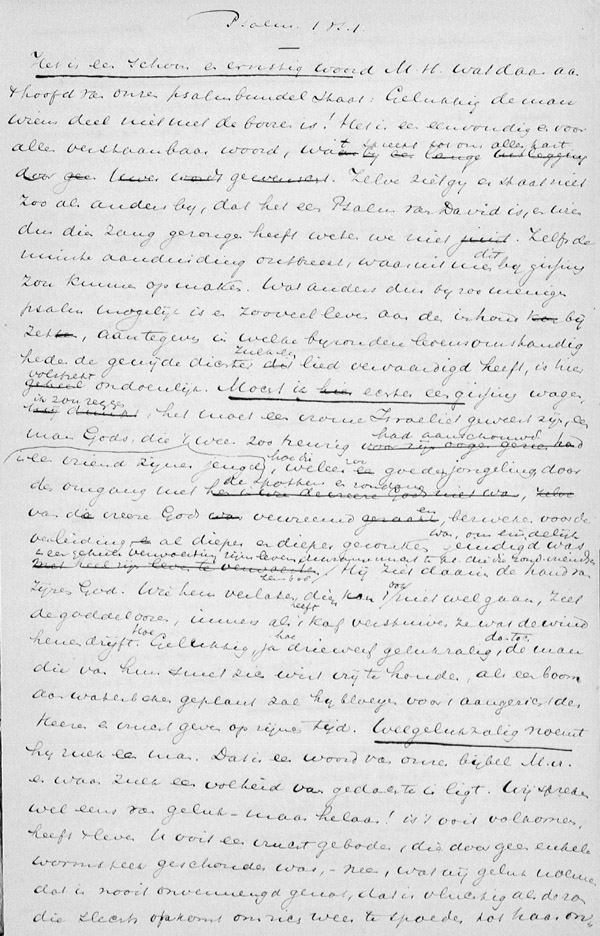 Psalm 1 vs. 1.
Het is een schoon en ernstig woord M. H. wat daar aan
't hoofd van onzen psalmbundel staat: Gelukkig de man
wiens deel niet met de boozen is! Het is een eenvoudig en voor
alle verstaanbaar woord, wat spreekt tot ons allen
door geen gewenscht. Zelve ziet gy er staat niet
zoo als anders by, dat het een Psalm van David is, en wie
dus dien zang gezongen heeft weten we niet juist. Zelfs de
minste aanduiding ontbreekt, waaruit men dit by gissing
zou kunnen opmaken. Wat anders dus by zoo menigen
psalm mogelijk is en zooveel leven aan de inhoud bij
zetten, aantegeven in welke byzondere levensomstandig
heden de gewijde dichter zulk een lied vervaardigd heeft, is hier
volstrekt ondoenlijk. Moest ik hier echter een gissing wagen,
ik zou zeggen, het moet een vrome Israeliet geweest zijn, een
man Gods, die 't wee zoo treurig had aanschouwd
een vriend zijner jeugd, hoe die welke goede jongeling door
den omgang met de spotters en zondaren
van de vreeze Gods vervreemd en, bezweken voor de
verleiding al dieper en dieper gezonken was, om eindelijk geeindigd was
met heel zijn leven te verwoesten. Hij ziet daarin de hand van
zijnen God. Wie hem verlaten, dien kan 't ook niet wel gaan, zeet
de goddeloozen, immers als 't kaf verstuiven ze wat de wind
henen drijft. Gelukkig, ja driewerf gelukzalig, de man
die van hun smet zich wist vrij te houden, als een boom
aan waterbeken geplant zal hy bloeyen voor 't aangezicht des
Heeren en vrucht geven op zijnen tijd. Welgelukzalig noemt
hy zulk een man. Dat is een woord van onzen bijbel M. H.
en waar zulk een volheid van gedachten in ligt. Wij spreken
wel eens van geluk - maar helaas! is 't ooit volkomen,
heeft 't leven U ooit een vrucht geboden, die door geen enkele
wormsteek geschonden was, - nee, wat wij geluk noemen
dat is nooit onvermengd genot, dat is vluchtig als de zon
die slechts opkomt om ries weer te spoeden tot haar on-